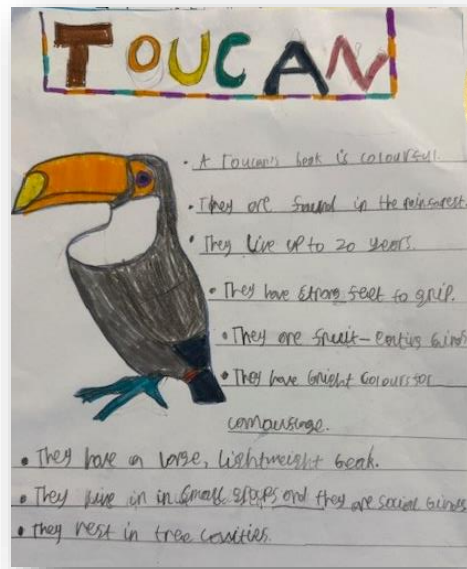 TOUCAN
• A Toucan's beak is colourful.
• They are found in the rainforest.
• They live up to 20 years.
• They have strong feet to grip.
• They are fruit-eating birds
• They have bright colours for
camouflage.
• They have a large, lightweight beak.
• They live in in small groups and they are social birds
• They nest in tree cavities.